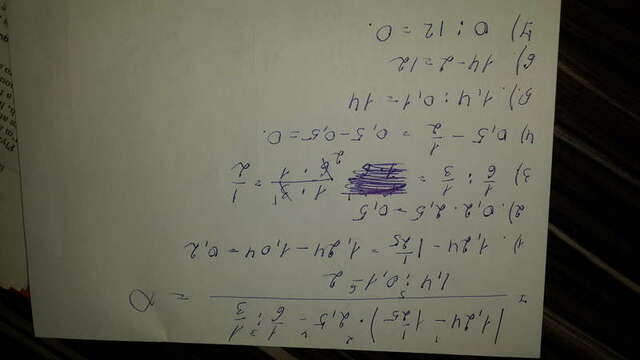 (1,24 - 1 1/25) · 2,5 - 1/6 : 1/3
1,4 : 0,1 - 2
= 0
1). 1,24 - 1 1/25 = 1,24 - 1,04 = 0,2
2). 0,2 · 2,5 = 0,5
3) 1/6 : 1/3 = 1 · 3 / 6 · 1 = 1/2
4) 0,5 - 1/2 = 0,5 - 0,5 = 0.
5). 1,4 : 0,1 = 14
6). 14 - 2 = 12
7) 0 : 12 = 0.